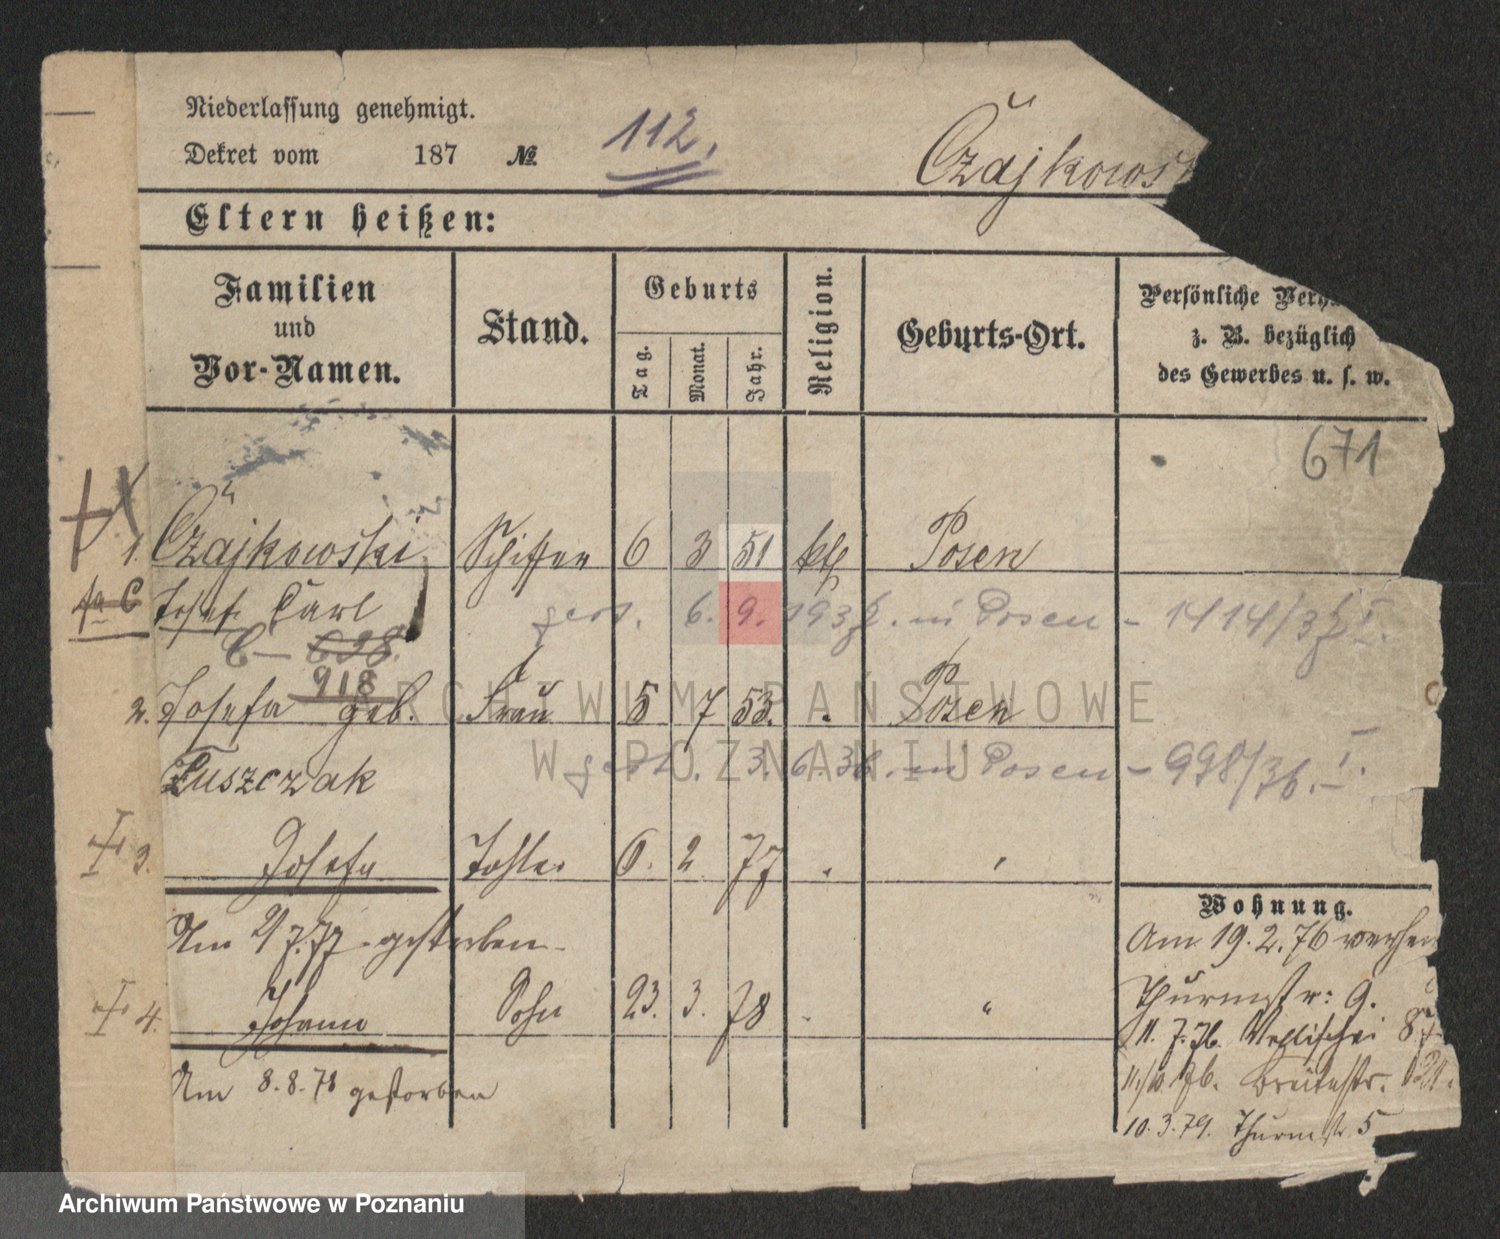 Niederlassung genehmigt.
Dekret vom 187 № 112.
Czajkowsk
Eltern heißen:
Familien und Vor-Namen.
Stand.
Geburts
Tag.
Monat.
Jahr.
Religion.
Geburts-Ort.
Persönliche Verh
z. B. bezüglich
des Gewerbes u. s. w.
671
1. Czajkowski Schiffer 6 3 51 kth Posen
Josef Carl
gest. 6. 9. 1937. in Posen - 1414/37 I.
C - 698.
918
2. Josefa geb. Frau 5 7 53. Posen
Tuszczak
gest. 3. 6. 36. in Posen - 998/36. I.
3. Josefa Tochter 6. 2 77
Am 2/7.77 gestorben
4. Johann Sohn 23. 3. 78 "
Am 8.8.78 gestorben
Wohnung.
Am 19.2.76
Thurmstr: 9.
11. 7. 76. Wallischei
11./10. 76.
10.3.79. Thurmstr 5
ARCHIWUM PAŃSTWOWE
W POZNANIU
Archiwum Państwowe w Poznaniu